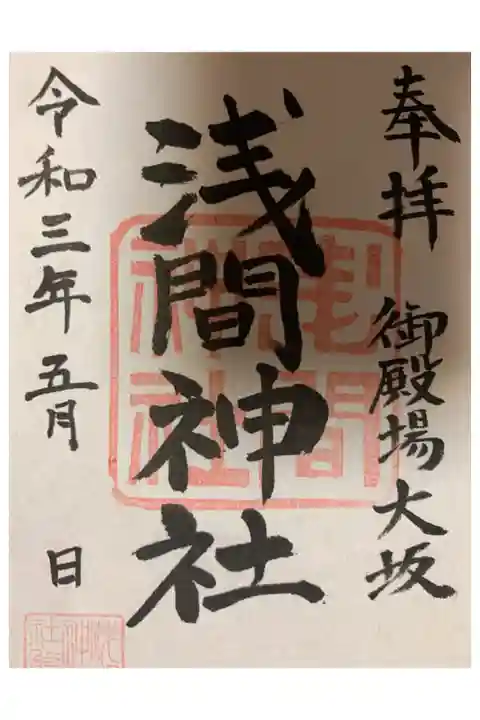 奉拝 御殿場大坂
浅間神社
令和三年五月 日
浅間神社